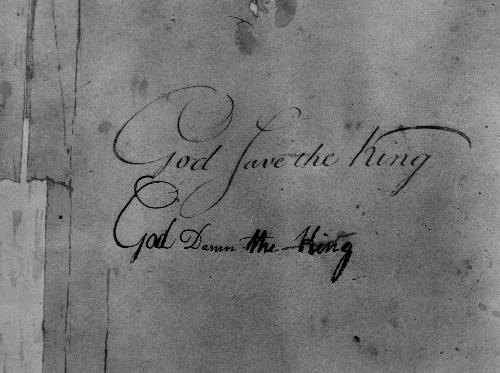 God save the King
God Damn the King